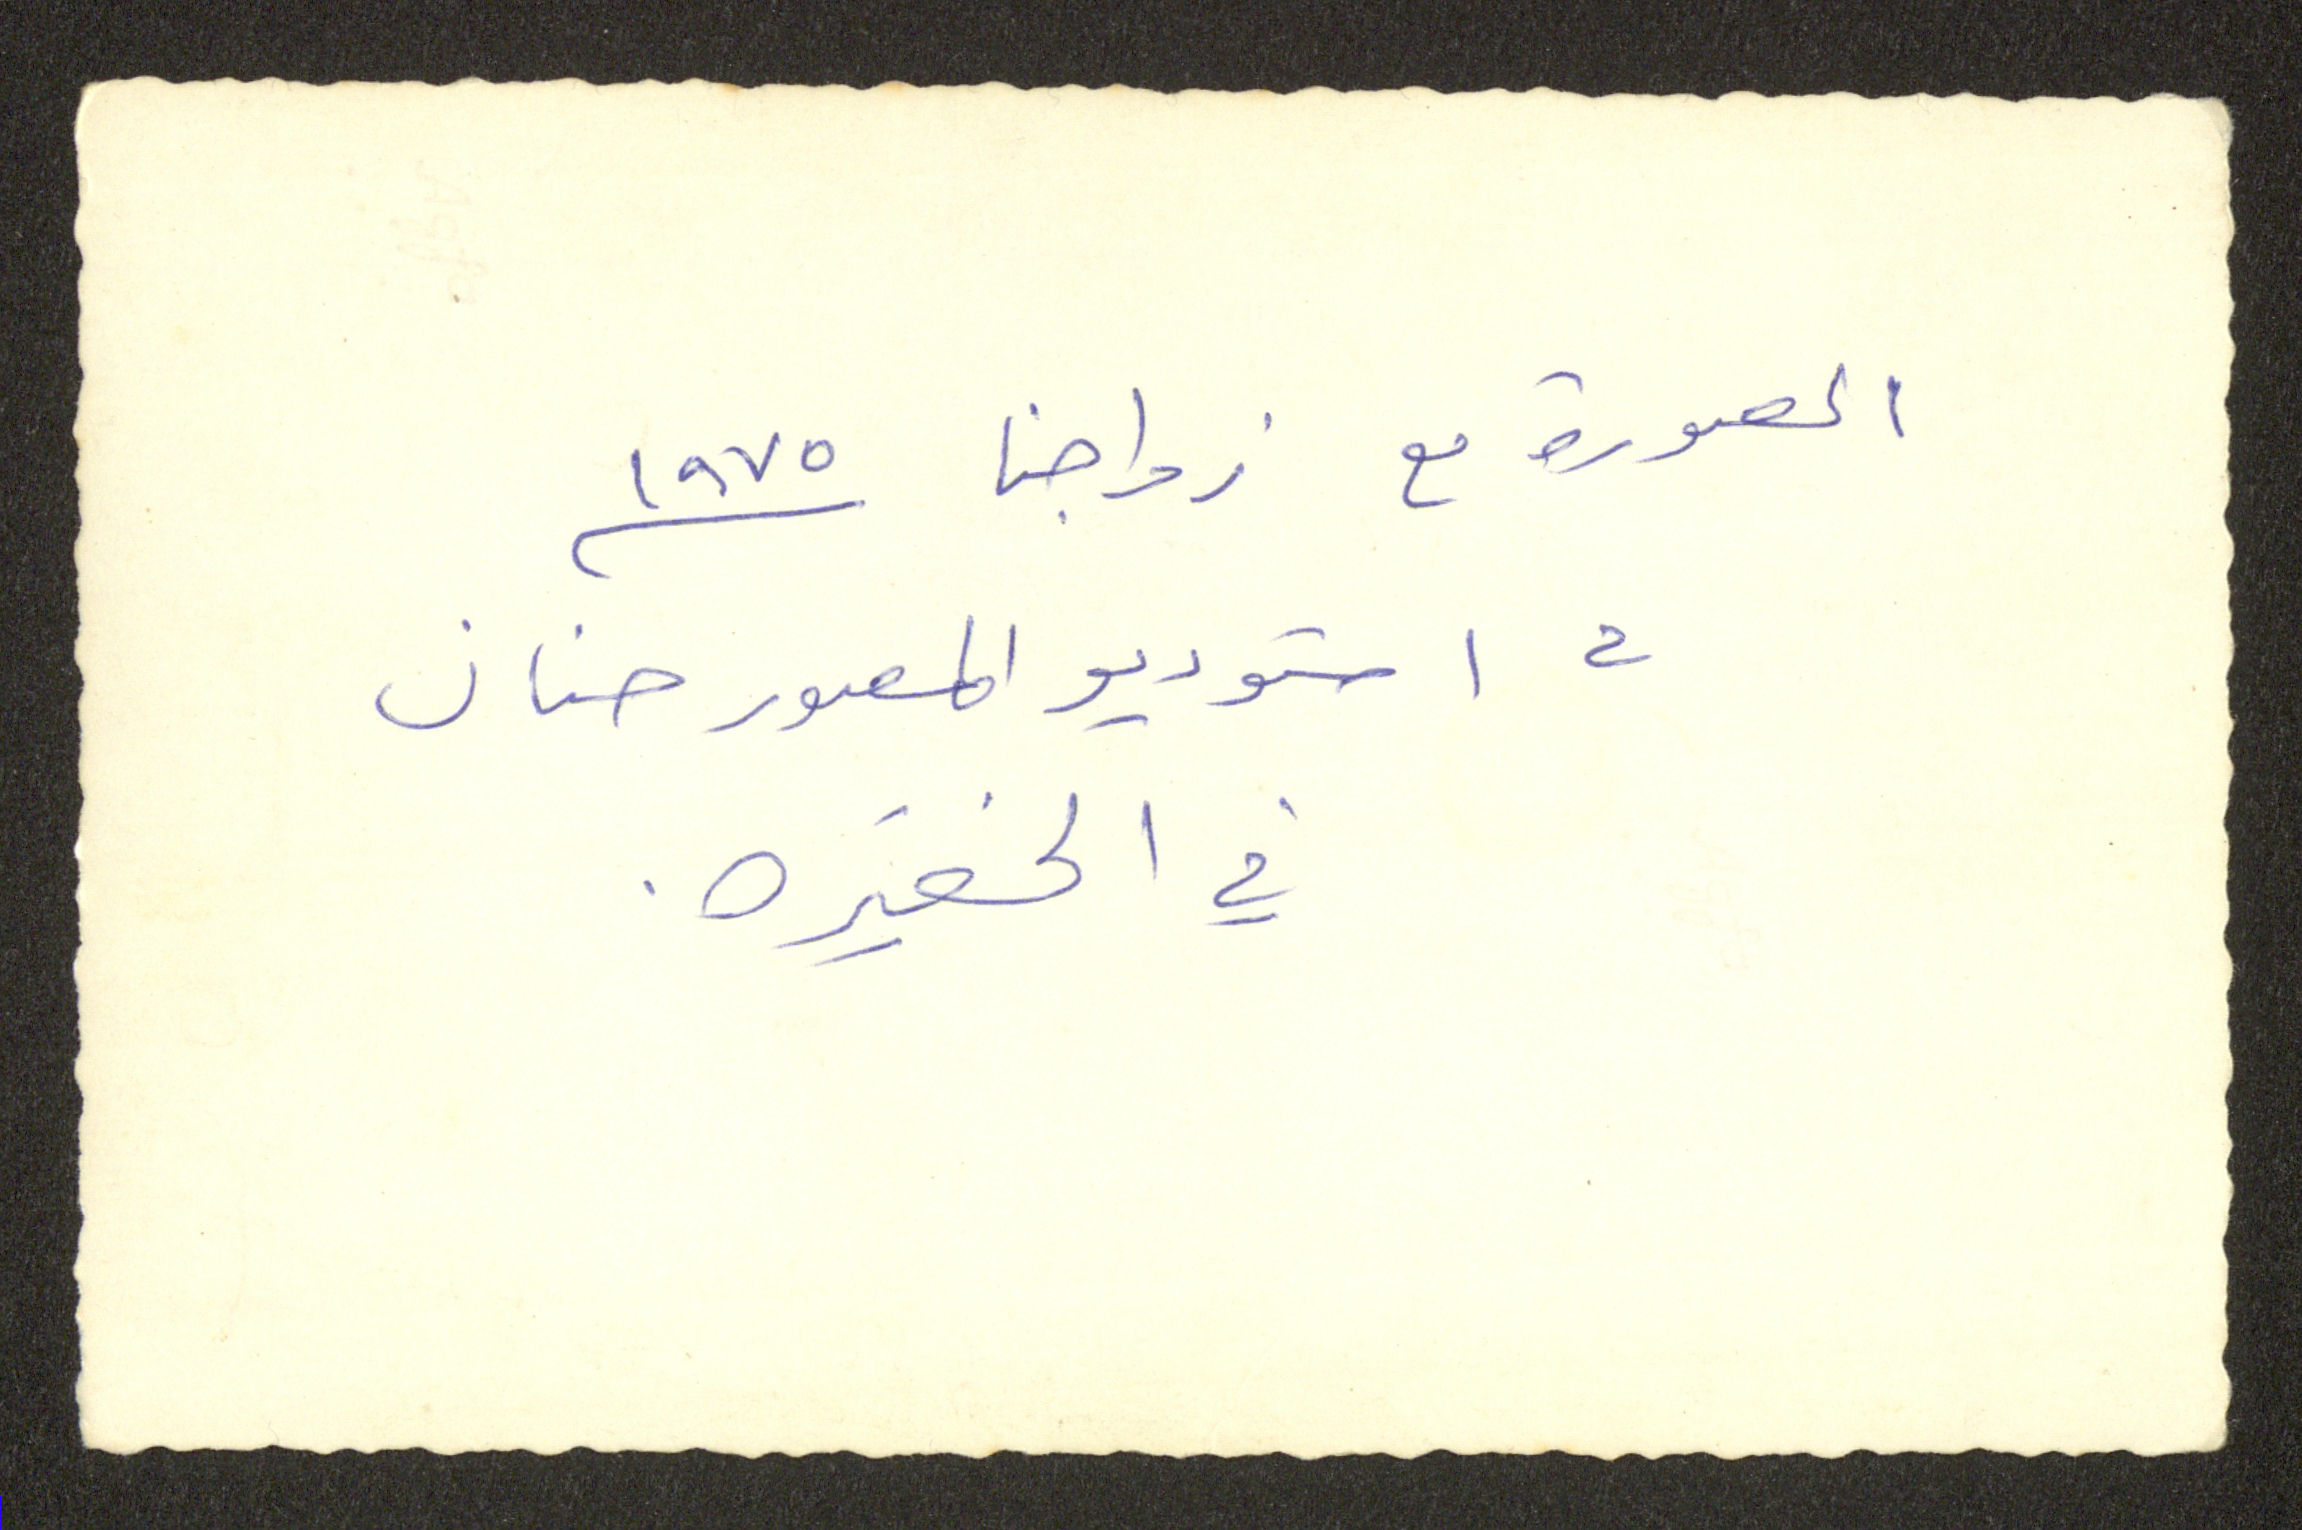 الصورة مع زواجنا ١٩٧٥
في استوديو المصور حنان
في الخضيره.